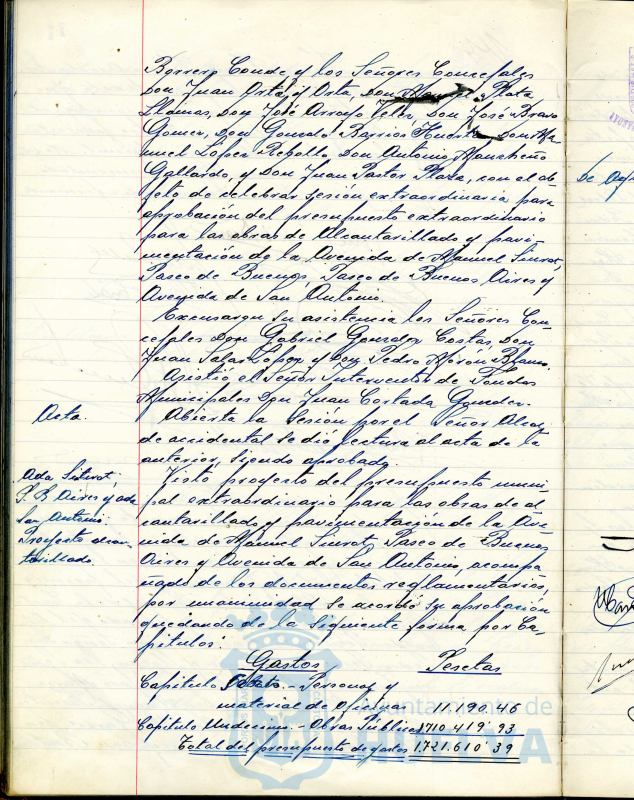 Borrero Conde, y los Señores Concejales
Don Juan Orta y Orta, Don Plata
Llamas, Don José Arroyo Telez, Don José Bravo
Gomez, Don Gonzalo Barrios Huerta Don Ma-
nuel López Rebollo, Don Antonio Mancheño
Gallardo, y Don Juan Pastor Plaza, con el ob-
jeto de celebrar sesión extraordinaria para
aprobación del presupuesto extraordinario
para las obras de Alcantarillado y pavi-
mentación de la Avenida de Manuel Siurot,
Paseo de Buenos, Paseo de Buenos Aires y
Avenida de San Antonio.
Excusaron su asistencia los Señores Con-
cejales Don Gabriel Gonzalez Costas, Don
Juan Salas López y Don Pedro Morón Blanco.
Asistió el Señor Interventor de Fondos
Municipales Don Juan Cortada Gonzalez.
Acta.
Abierta la Sesión por el Señor Alcal-
de accidental se dió lectura al acta de la
anterior, siendo aprobada.
Avda Siurot,
P. B Aires y avda
San Antonio
Proyecto alcan-
tarillado.
Visto proyecto del presupuesto munici-
pal extraordinario para las obras de al-
cantarillado y pavimentación de la Ave-
nida de Manuel Siurot, Paseo de Buenos
Aires y Avenida de San Antonio, acompa-
ñado de los documentos reglamentarios,
por unanimidad se acordó su aprobación
quedando de la siguiente forma por Ca-
pítulos:
Gastos Pesetas
Capítulo .- Personal y
material de oficinas 11.190.46
Capítulo Undecimo.- Obras Públicas 1710.419'93
Total del presupuesto de gastos 1.721.610'39
Ayuntamiento de
HUELVA